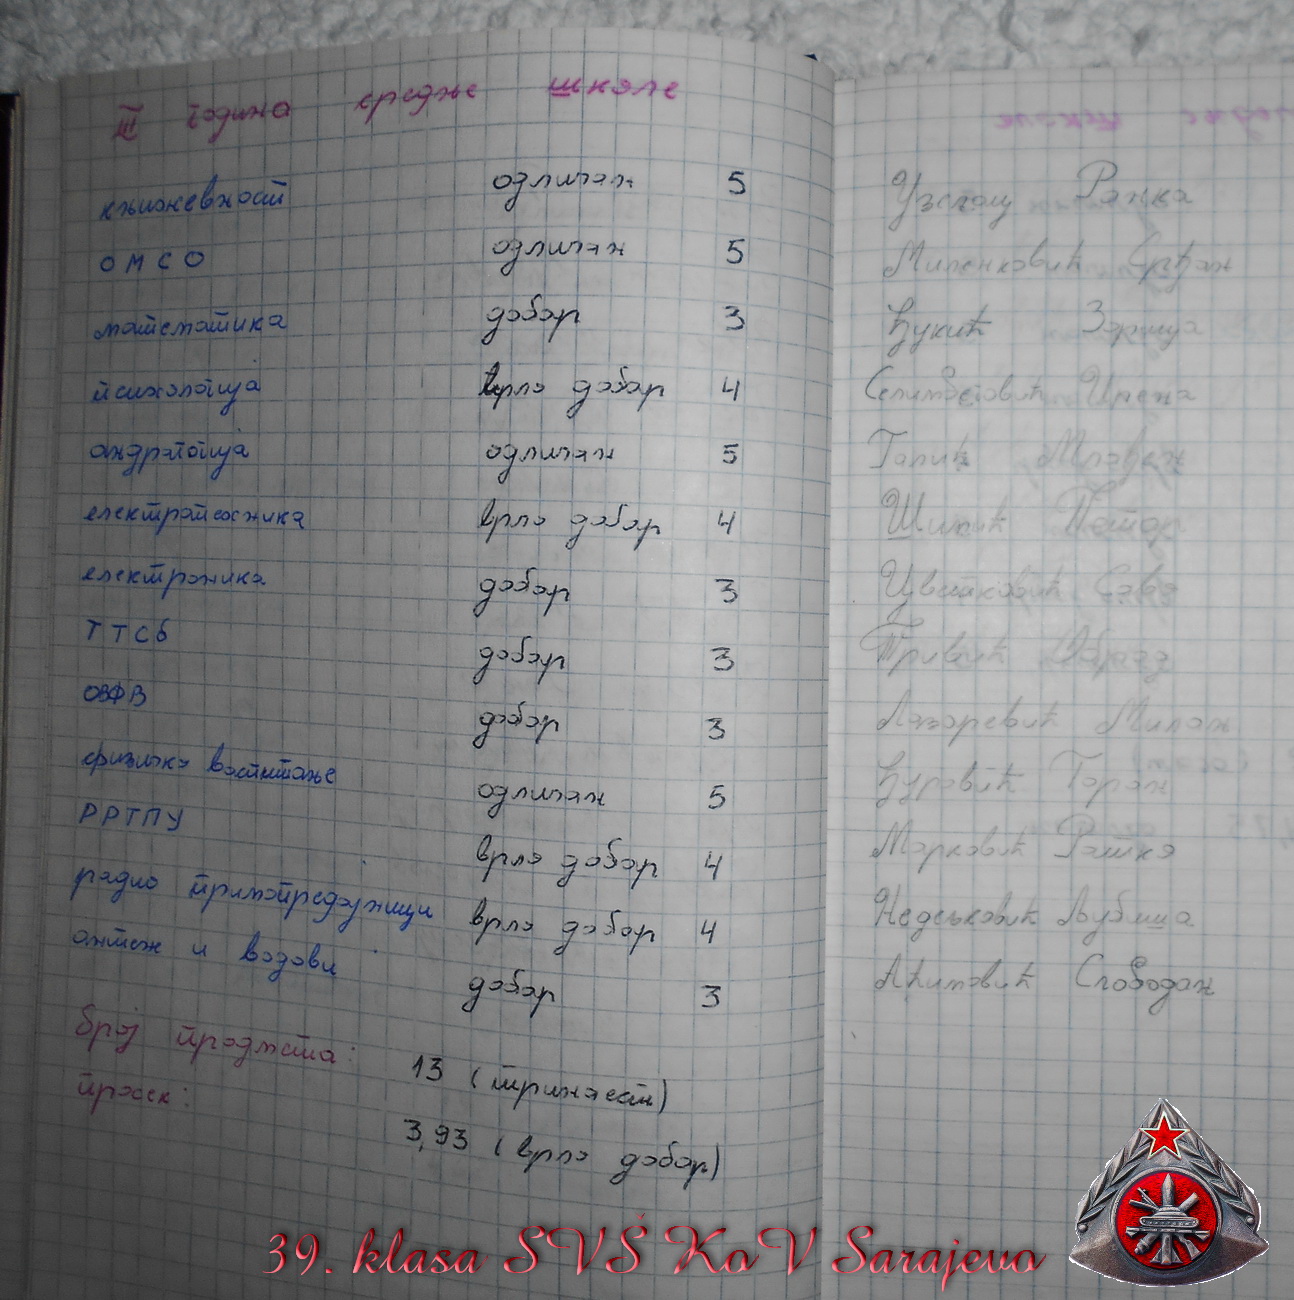 III година средње школе
књижевност одличан 5 Узелац Ранка
ОМСО одличан 5 Миленковић Срђан
математика добар 3 Ђукић Зорица
психологија врло добар 4 Селимбеговић Ирена
андрагогија одличан 5 Галић Млађен
електротехника врло добар 4 Шипић Петар
електроника добар 3 Цветковић Сава
ТТСб добар 3 Тривић
ОВФВ добар 3 Лазаревић Милан
физичко васпитање одличан 5 Ђуровић Горан
РРТПУ врло добар 4 Марковић Ратко
радио примопредајници врло добар 4 Недељковић Љубиша
антене и водови добар 3 Аћимовић Слободан
број предмета: 13 (тринаест)
просек: 3,93 (врло добар)
39. klasa SVŠ KoV Sarajevo